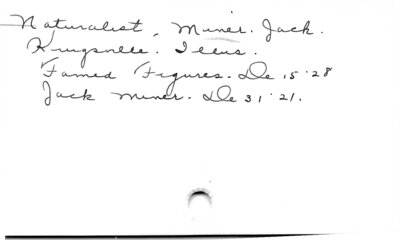 Naturalist, Miner. Jack.
Kingsville. Illus.
Famed Figures. De 15 '28
Jack Miner. De 31 '21.